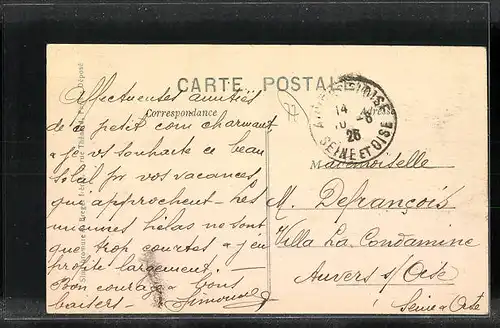 CARTE POSTALE
Correspondance
Affectueuses amitiés
de ce petit coin charmant
je vous souhaite ce beau
soleil pr vos vacances
qui approchent - Les
miennes hélas ne sont
que trop courtes & j'en
profite largement -
Bon courage & bons
baisers - Simonne
77
14
26
SEINE ET OISE
Mademoiselle
M. Defrançois
Villa La Condamine
Auvers s/ Oise
Seine & Oise
Déposé